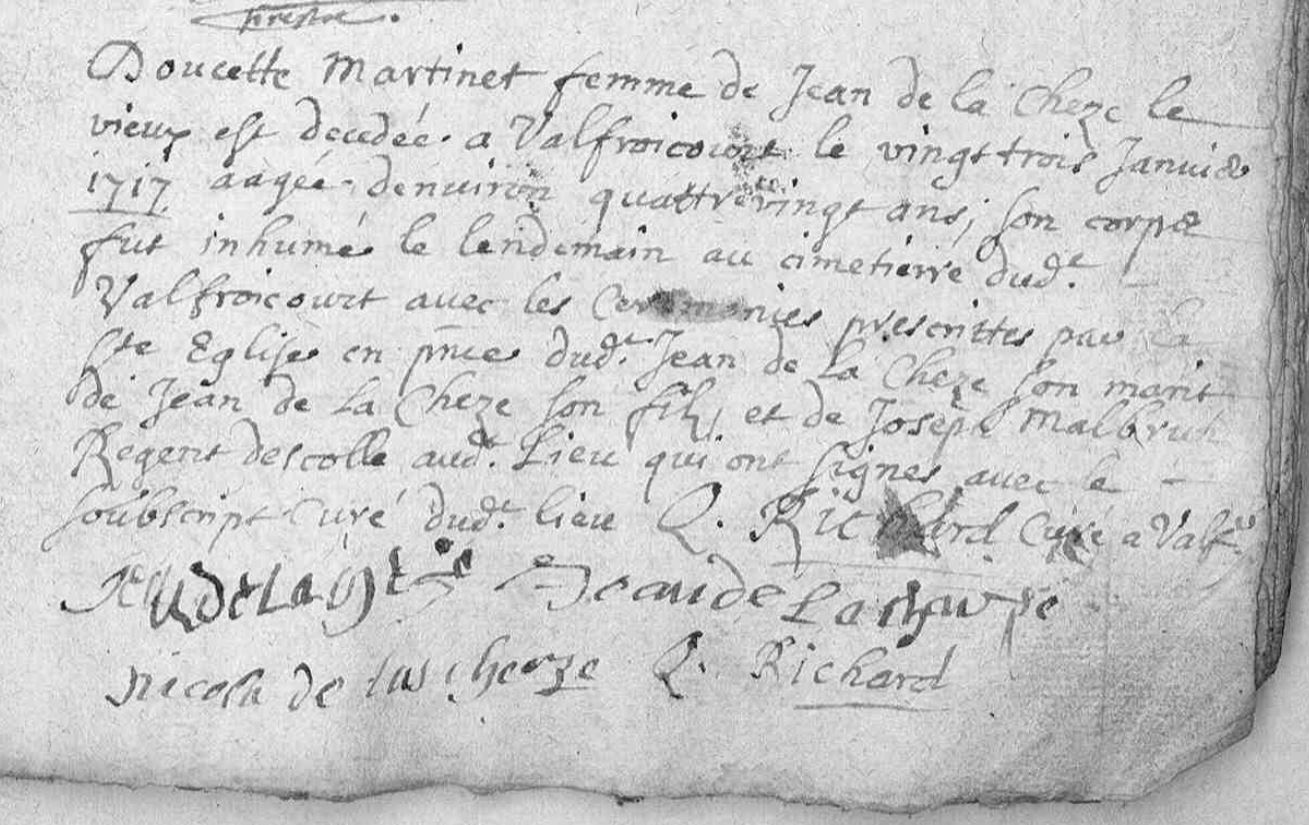 prestre.
Doucette Martinet femme de Jean de la Cheze le
vieux est decedée a Valfroicourt le vingt trois Janvier
1717 aagée denuiron quattre vingt ans, son corps
fut inhumé le lendemain au cimetierre dud.t
Valfroicourt avec les Ceremonies prescrittes par la
Ste Eglise en pnce dud.t Jean de La Cheze son marit
de Jean de La Cheze son fils, et de Joseph Malbrun
Regent descolle aud.t Lieu qui ont signes avec le
soubscript Curé dud.t lieu Q. Richard Curé a Valf.
Jean de La
nicola de Q. Richard